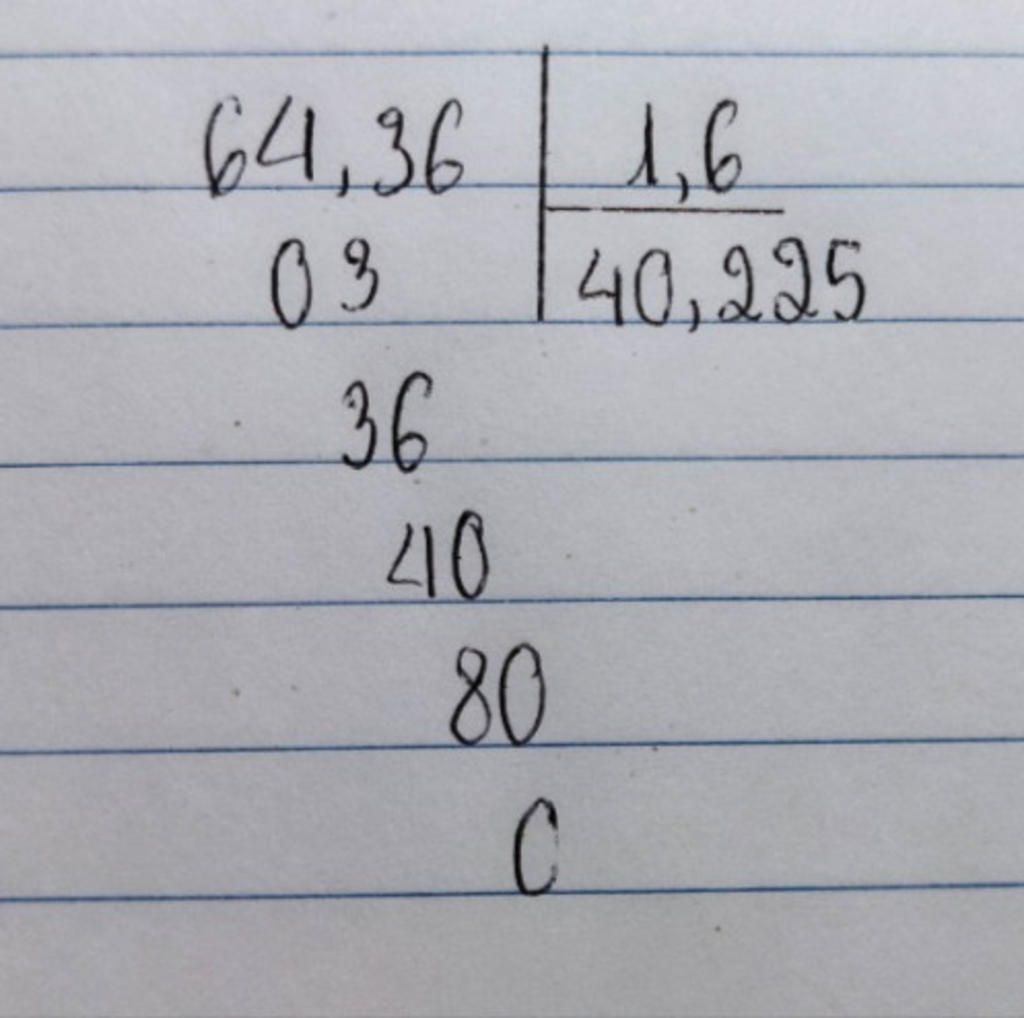 64,36 1,6
03 40,225
36
40
80
0